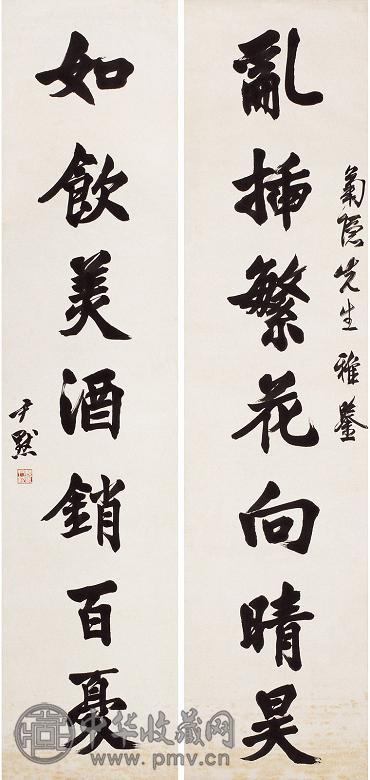 菊隐先生雅鑒
亂插繁花向晴昊
如飲美酒銷百憂
尹默
中华收藏网
www.pmv.cn